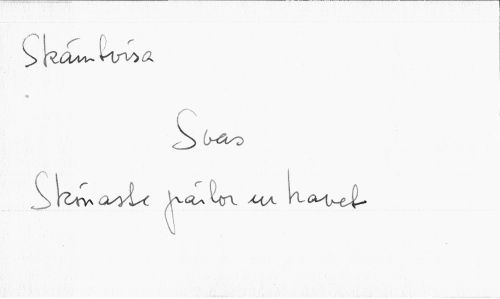 Skämtvisa
Svas
Skönaste pärlor ur havet